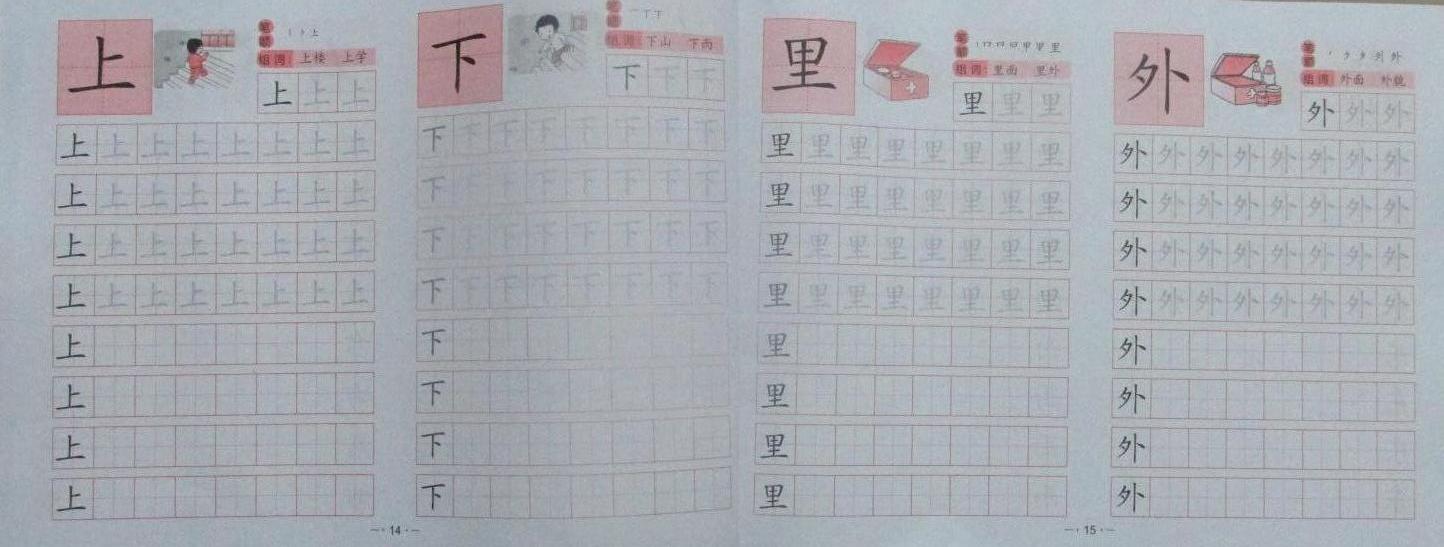 上
笔顺 丨 ⺊ 上
组词 上楼 上学
上 上 上
上 上 上 上 上 上 上 上
上 上 上 上 上 上 上 上
上 上 上 上 上 上 上 上
上 上 上 上 上 上 上 上
上
上
上
上
下
笔顺 一 丁 下
组词 下山 下雨
下 下 下
下 下 下 下 下 下 下 下
下 下 下 下 下 下 下 下
下 下 下 下 下 下 下 下
下 下 下 下 下 下 下 下
下
下
下
下
14
里
笔顺 里
组词 里面 里外
里 里 里
里 里 里 里 里 里 里 里
里 里 里 里 里 里 里 里
里 里 里 里 里 里 里 里
里 里 里 里 里 里 里 里
里
里
里
里
外
笔顺 外
组词 外面 外貌
外 外 外
外 外 外 外 外 外 外 外
外 外 外 外 外 外 外 外
外 外 外 外 外 外 外 外
外 外 外 外 外 外 外 外
外
外
外
外
15